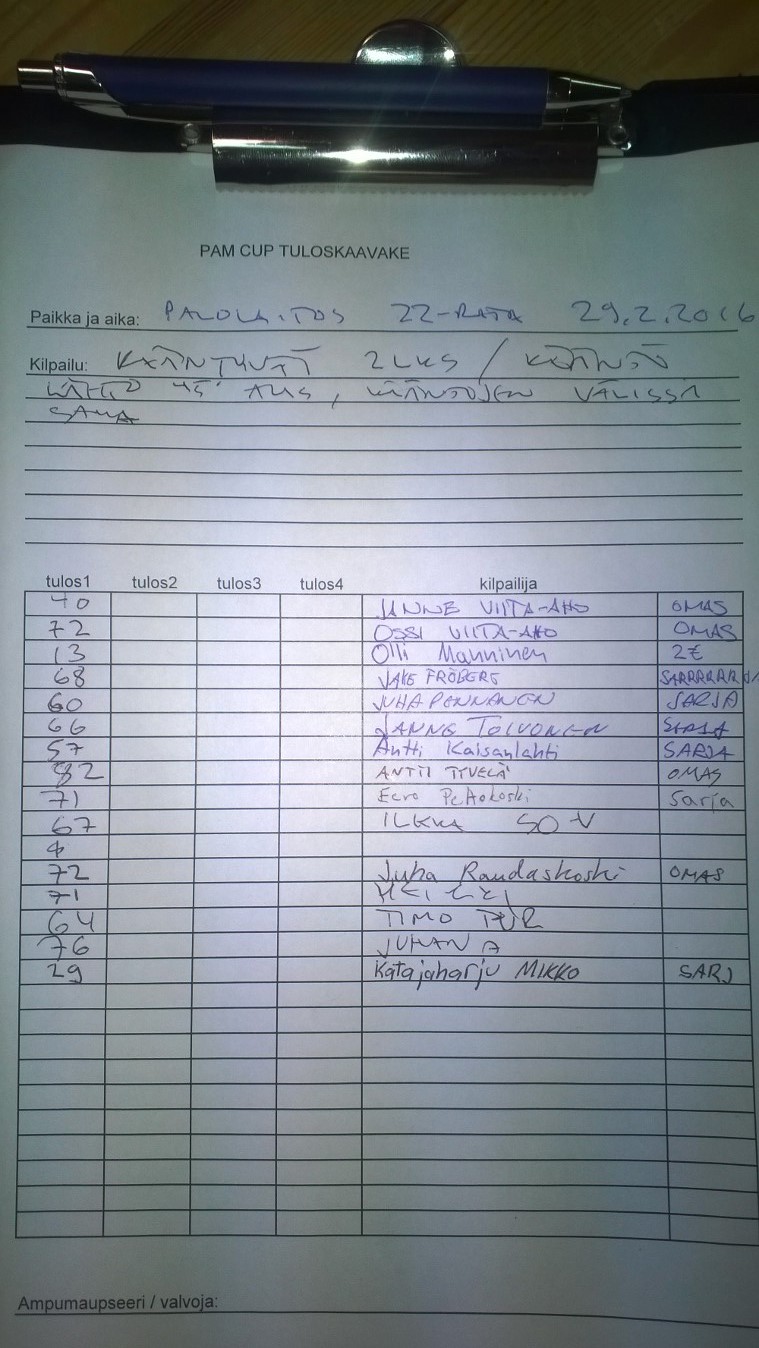 PAM CUP TULOSKAAVAKE
Paikka ja aika: PALOLAITOS 22-RATA 29.2.2016
Kilpailu: KÄÄNTYVÄT 2LKS / KÄÄNTÖ
LÄHTÖ 45° ALAS, KÄÄNTÖJEN VÄLISSÄ
SAMA
tulos1 tulos2 tulos3 tulos4 kilpailija
40 JANNE VIITA-AHO OMAS
72 OSSI VIITA-AHO OMAS
13 Olli Manninen 2€
68 JAKE FRÖBERG
60 JUHA PENNANEN SARJA
66 JANNE TOIVONEN SARJA
57 Antti Kaisanlahti SARJA
82 ANTTI TYVELÄ OMAS
71 Eero Sarja
67 ILKKA
72 Juha Raudaskoski OMAS
71
64 TIMO
76 JUHANA
29 Katajaharju MIKKO SARJ
Ampumaupseeri / valvoja: